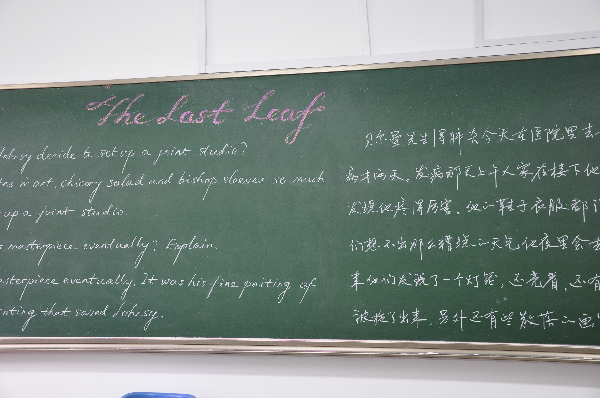 The Last Leaf
Johnsy decide to set up a joint studio?
tes in art, chicory salad and bishop sleeves so much
up a joint studio.
s masterpiece eventually? Explain.
asterpiece eventually. It was his fine paiting of
nting that saved Johnsy.
贝尔曼先生得肺炎今天在医院里去
病才两天。发病那天上午人家在楼下他
发现他疼得厉害。他的鞋子衣服都
们想不出那么糟糕的天气他夜里会去
来他们发现了一个灯笼，还亮着，还有
被拖了出来，另外还有些散落的画